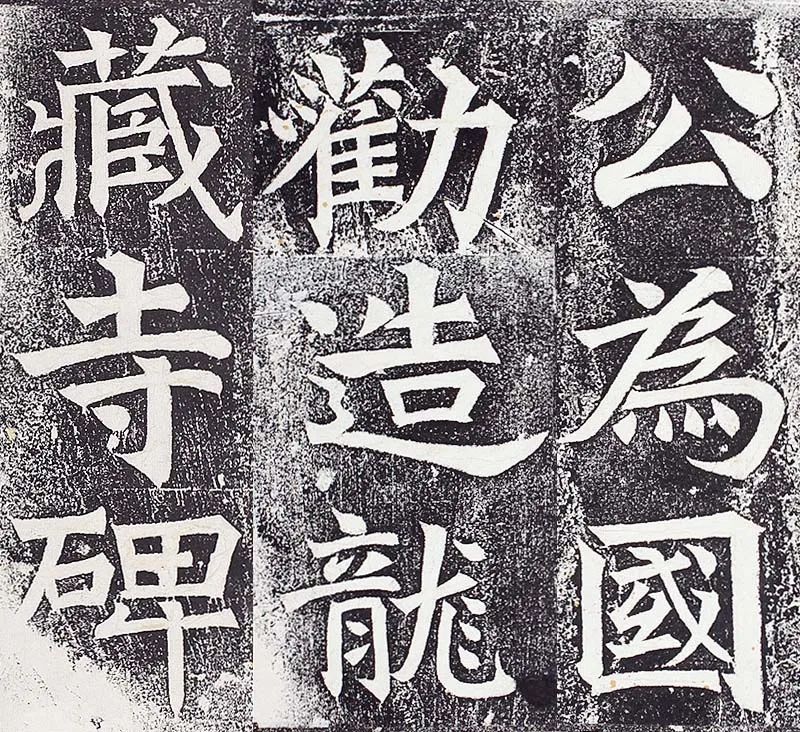 公為國
勸造龍
藏寺碑